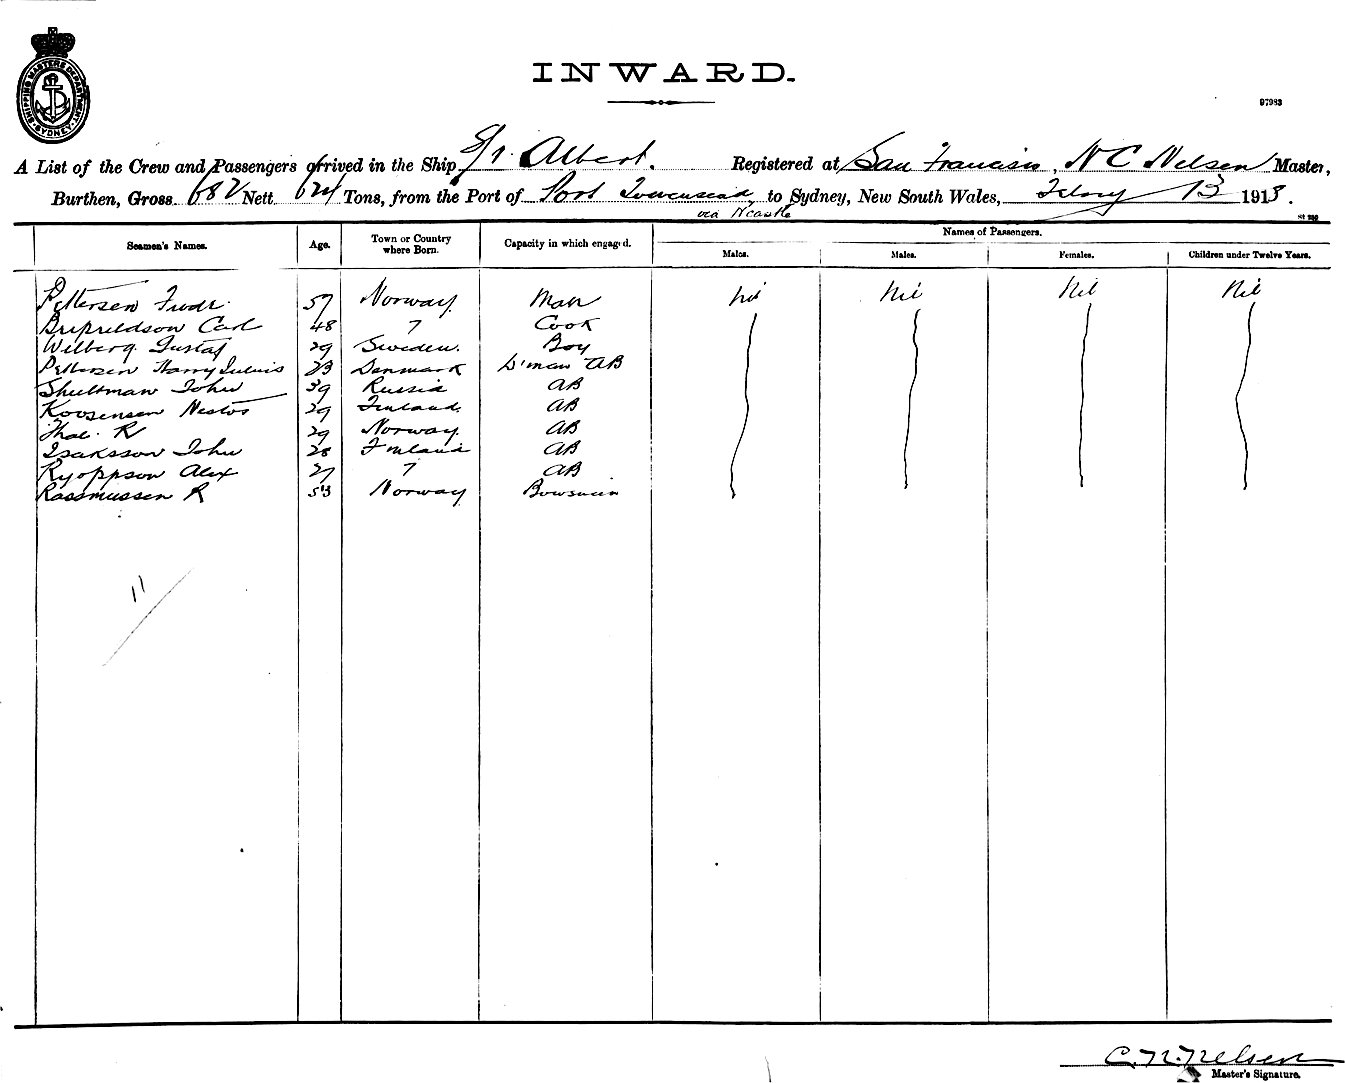 SHIPPING MASTERS DEPARTMENT SYDNEY
INWARD.
97983
A List of the Crew and Passengers arrived in the Ship Albert. Registered at San Francisco, N C Nelsen Master,
Burthen, Gross 682 Nett 624 Tons, from the Port of Port Townsend to Sydney, New South Wales, Febry 13 1913.
via Ncastle
Seamen's Names. Age. Town or Country where Born. Capacity in which engaged. Names of Passengers.
Males. Males. Females. Children under Twelve Years.
Pettersen Fredr. 57 Norway Mate Nil Nil Nil Nil
Carl 48 " Cook
Wilberg Gustaf 29 Sweden. Boy
Pettersen Harry Julius 23 Denmark D'man AB
Shultman John 39 Russia AB
29 Finland. AB
Thal. R 29 Norway. AB
Isaksson John 28 Finland AB
Alex 27 " AB
Rassmussen R 53 Norway
11
C. N. Nelsen
Master's Signature.